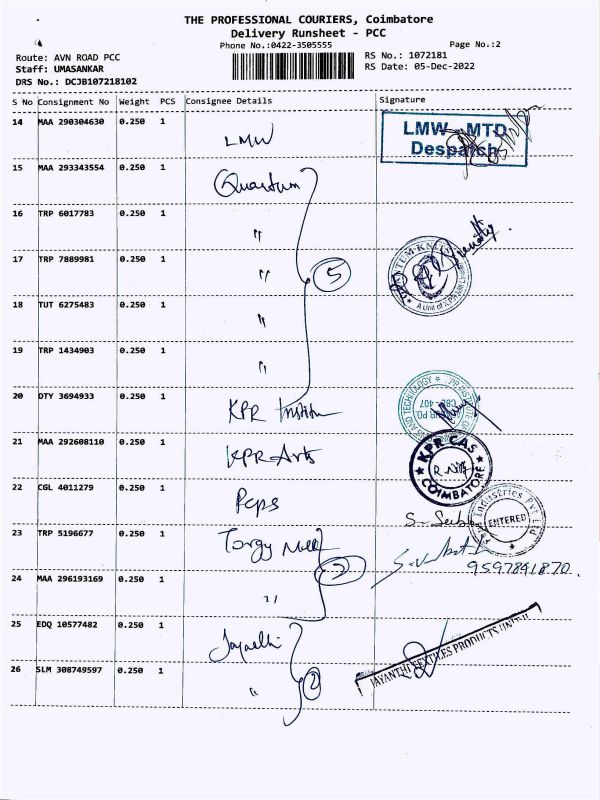 THE PROFESSIONAL COURIERS, Coimbatore
Delivery Runsheet - PCC
Phone No.:0422-3505555
Page No.:2
Route: AVN ROAD PCC
RS No.: 1072181
Staff: UMASANKAR
RS Date: 05-Dec-2022
DRS No.: DCJB107218102
S No Consignment No Weight PCS Consignee Details Signature
14 MAA 290304630 0.250 1 LMW
LMW - MTD
Despatch
15 MAA 293343554 0.250 1 Quantum
16 TRP 6017783 0.250 1 "
17 TRP 7889981 0.250 1 " 5
18 TUT 6275483 0.250 1 "
19 TRP 1434903 0.250 1 "
20 DTY 3694933 0.250 1 KPR
21 MAA 292608110 0.250 1 KPR Arts
KPR CAS
COIMBATORE
22 CGL 4011279 0.250 1 Peps
ENTERED
23 TRP 5196677 0.250 1
9597891870.
24 MAA 296193169 0.250 1 "
25 EDQ 10577482 0.250 1
JAYANTHI TEXTILES PRODUCTS UNIT
26 SLM 308749597 0.250 1 " 2